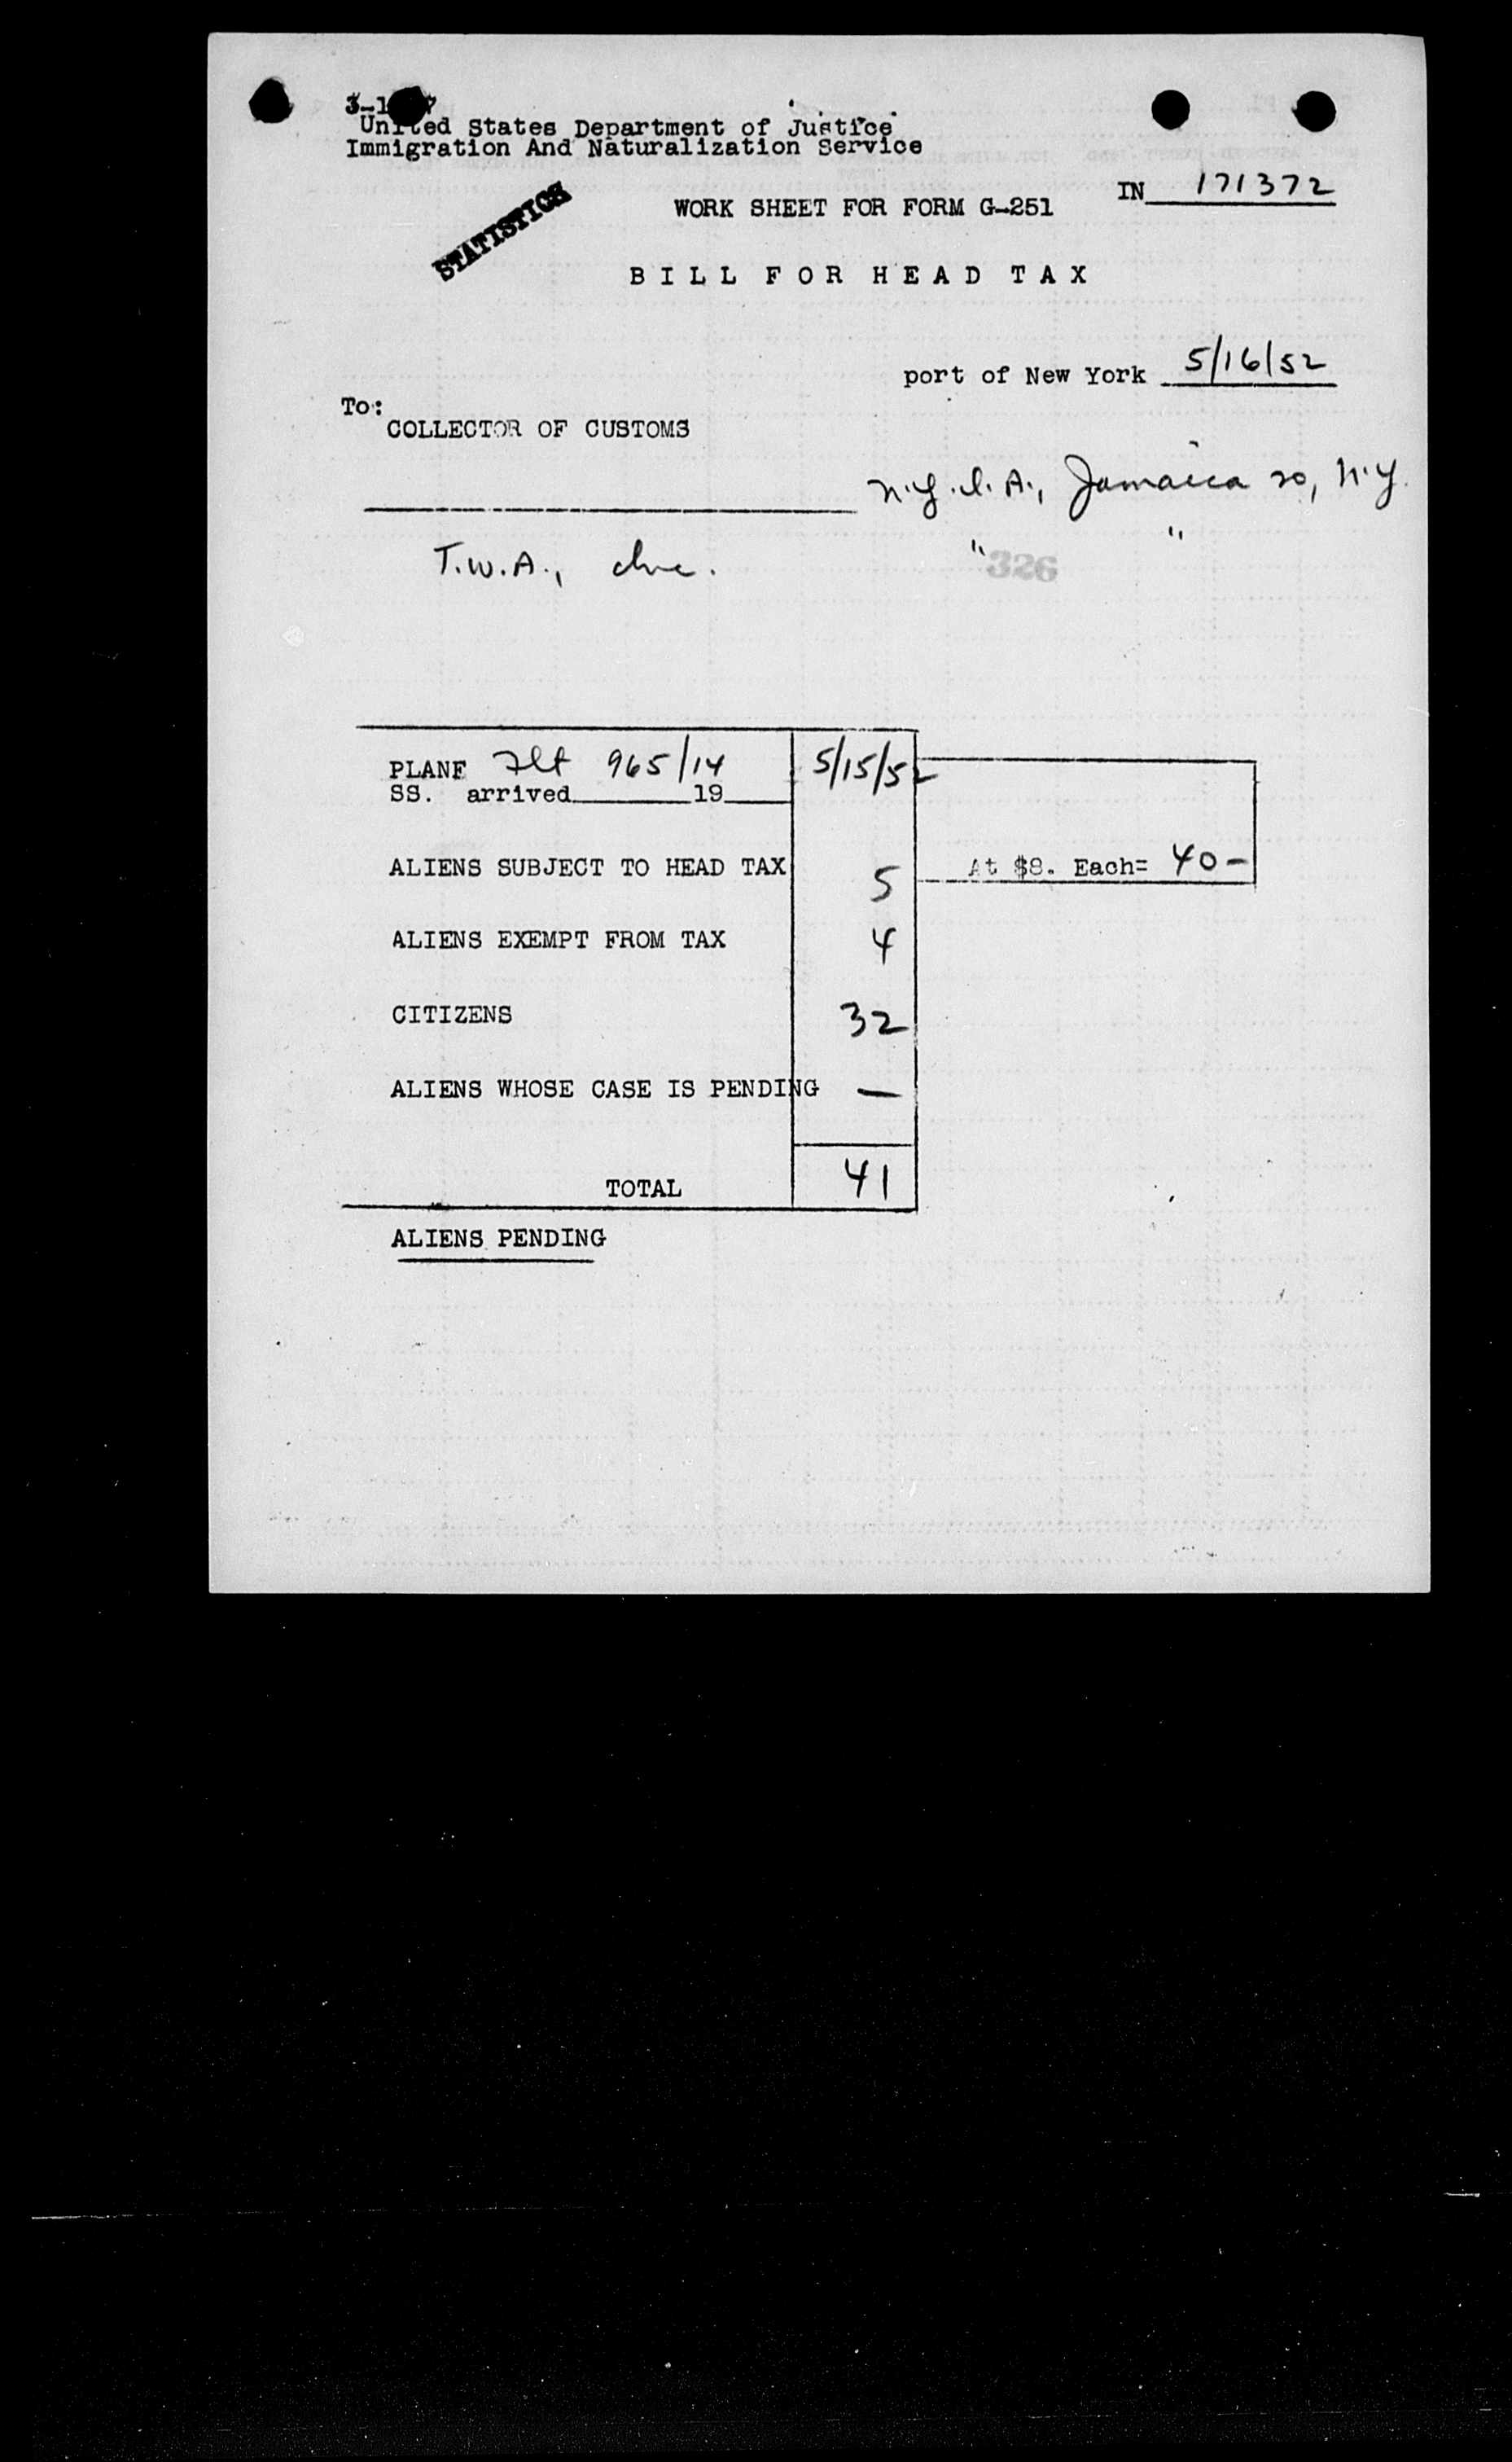 United States Department of Justice
Immigration And Naturalization Service
IN 171372
STATISTICS
WORK SHEET FOR FORM G-251
BILL FOR HEAD TAX
port of New York 5/16/52
To:
COLLECTOR OF CUSTOMS
N.Y.I.A., Jamaica 20, N.Y.
T.W.A., Inc. " "
326
PLANE Flt 965/14 5/15/52
SS. arrived 19
ALIENS SUBJECT TO HEAD TAX 5 At $8. Each= 40-
ALIENS EXEMPT FROM TAX 4
CITIZENS 32
ALIENS WHOSE CASE IS PENDING —
TOTAL 41
ALIENS PENDING